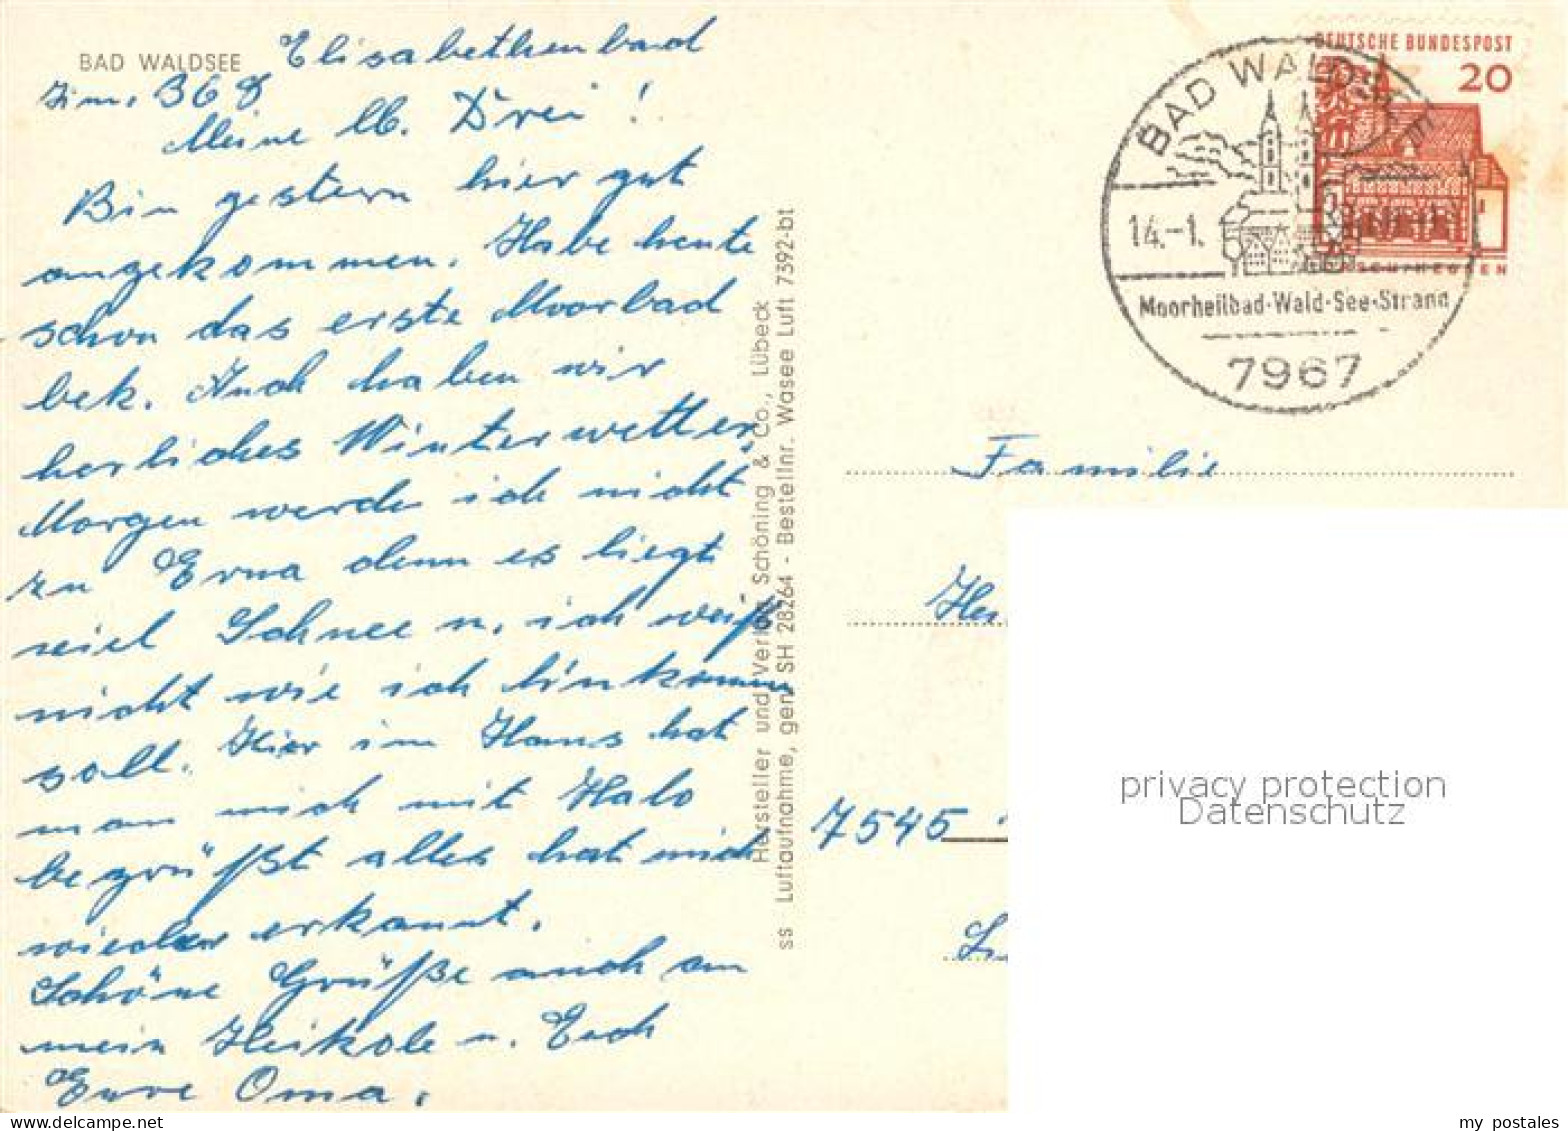 BAD WALDSEE
Elisabethenbad
Zim. 368
Meine lb. Drei!
Bin gestern hier gut
angekommen. Habe heute
schon das erste Moorbad
bek. Auch haben wir
herliches Winterwetter.
Morgen werde ich nicht
zu Erna denn es liegt
viel Schnee u. ich weiß
nicht wie ich hinkommen
soll. Hier im Haus hat
man mich mit Halo
begrüßt alles hat mich
wieder erkannt.
Schöne Grüße auch an
mein Heikole u. Euch
Eure Oma.
Hersteller und Verlag Schöning & Co., Lübeck
ss Luftaufnahme, gen. SH 28264 - Bestellnr. Wasee Luft 7392-bt
DEUTSCHE BUNDESPOST
20
BAD WALDSEE
14.-1.
Moorheilbad-Wald-See-Strand
7967
Familie
7545
privacy protection
Datenschutz
my postales